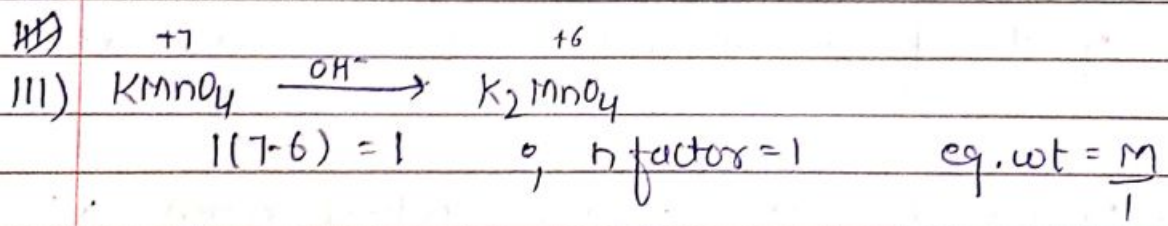 +7 +6
III) KMnO4 OH⁻ → K2MnO4
1(7-6) = 1 ; n factor = 1 eq. wt = M/1